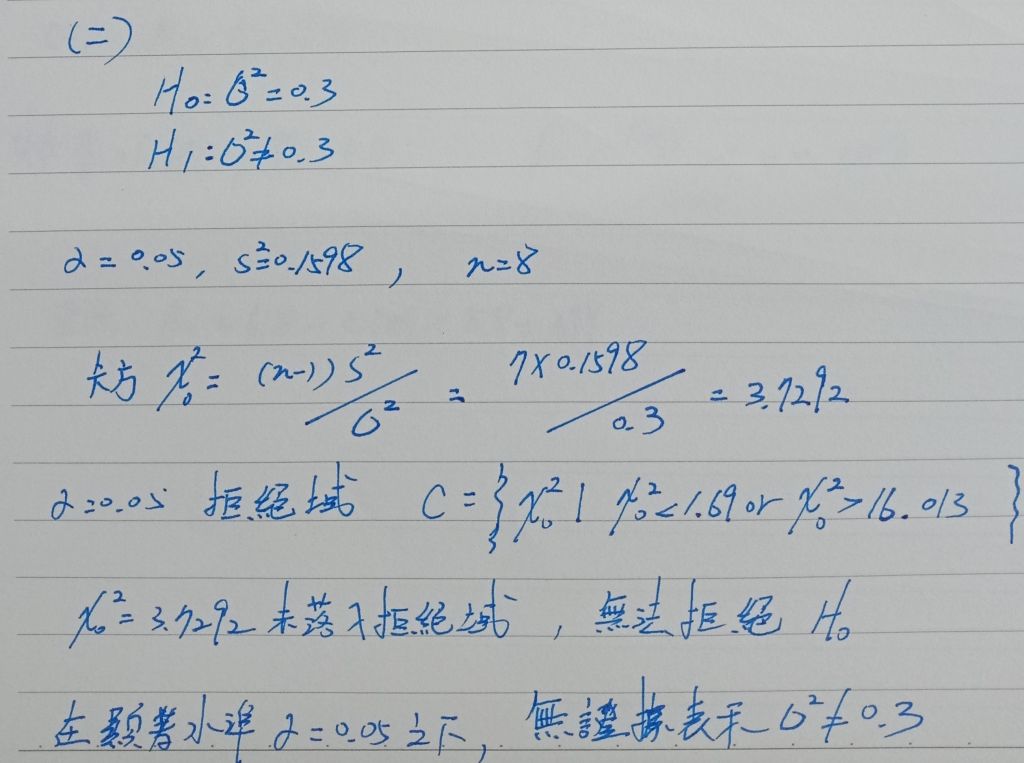 (二)
H₀: σ² = 0.3
H₁: σ² ≠ 0.3
α = 0.05, s² = 0.1598, n = 8
卡方 χ₀² = (n-1) s² / σ² = 7 × 0.1598 / 0.3 = 3.7292
α = 0.05 拒絕域 C = { χ₀² | χ₀² < 1.69 or χ₀² > 16.013 }
χ₀² = 3.7292 未落入拒絕域, 無法拒絕 H₀
在顯著水準 α = 0.05 之下, 無證據表示 σ² ≠ 0.3